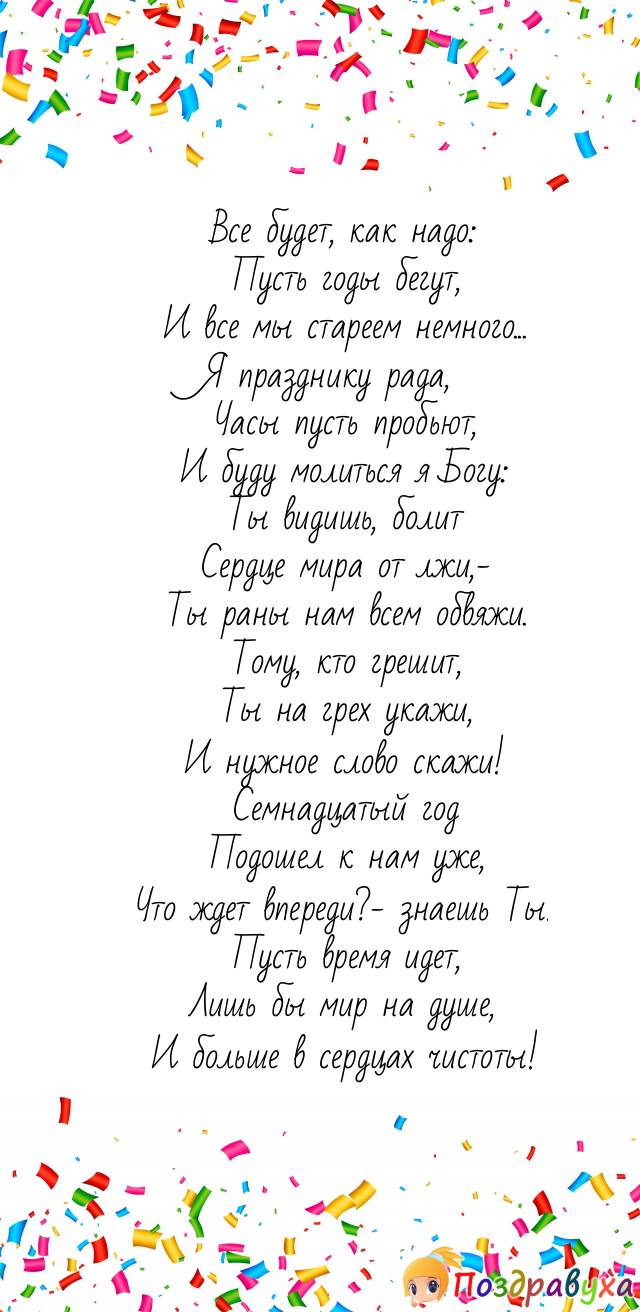 Все будет, как надо:
Пусть годы бегут,
И все мы стареем немного...
Я празднику рада,
Часы пусть пробьют,
И буду молиться я Богу:
Ты видишь, болит
Сердце мира от лжи,-
Ты раны нам всем обвяжи.
Тому, кто грешит,
Ты на грех укажи,
И нужное слово скажи!
Семнадцатый год
Подошел к нам уже,
Что ждет впереди?- знаешь Ты.
Пусть время идет,
Лишь бы мир на душе,
И больше в сердцах чистоты!
Поздравуха